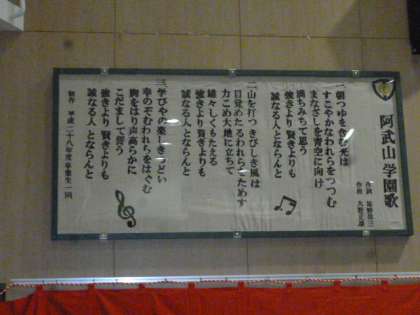 阿武山学園歌
作詞
作曲
一、朝つゆを含む光は
すこやかなわれらをつつむ
まなざしを青空に向け
満ちみちて思う
強きより 賢きよりも
誠なる人とならんと
二、山を打つきびしき風は
目覚めたるわれらをためす
力こめ大地に立ちて
雄々しくもたえる
強きより 賢きよりも
誠なる人とならんと
三、学びやの楽しきつどい
幸のぞむわれらをはぐむ
胸をはり声高らかに
こだまして誓う
強きより 賢きよりも
誠なる人とならんと
製作 平成二十八年度卒業生一同